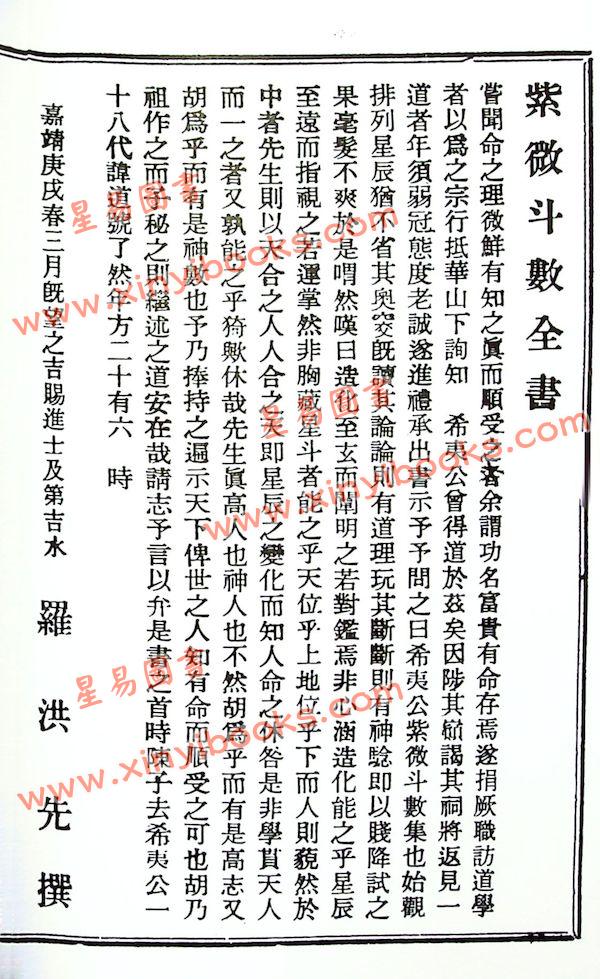 紫微斗數全書
嘗聞命之理微鮮有知之眞而順受之者余謂功名富貴有命存焉遂捐厥職訪道學
者以爲之宗行抵華山下詢知　希夷公曾得道於茲矣因陟其巓謁其祠將返見一
道者年須弱冠態度老誠遂進禮承出書示予予問之曰希夷公紫微斗數集也始觀
排列星辰猶不省其奥突旣讀其論論則有道理玩其斷斷則有神驗即以賤降試之
果毫髮不爽於是喟然嘆曰造化至玄而闡明之若對鑑焉非心涵造化能之乎星辰
至遠而指視之若運掌然非胸藏星斗者能之乎天位乎上地位乎下而人則藐然於
中者先生則以大合之人人合之天即星辰之變化而知人命之休咎是非學貫天人
而一之者又孰能之乎猗歟休哉先生眞高人也神人也不然胡爲乎而有是高志又
胡爲乎而有是神數也予乃捧持之遍示天下俾世之人知有命而順受之可也胡乃
祖作之而子秘之則繼述之道安在哉請志予言以弁是書之首時陳子去希夷公一
十八代諱道號了然年方二十有六　時
嘉靖庚戌春三月旣望之吉賜進士及第吉水　羅洪先撰
星易圖書
www.xinyibooks.com
星易圖書
www.xinyibooks.com
星易圖書
www.xinyibooks.com